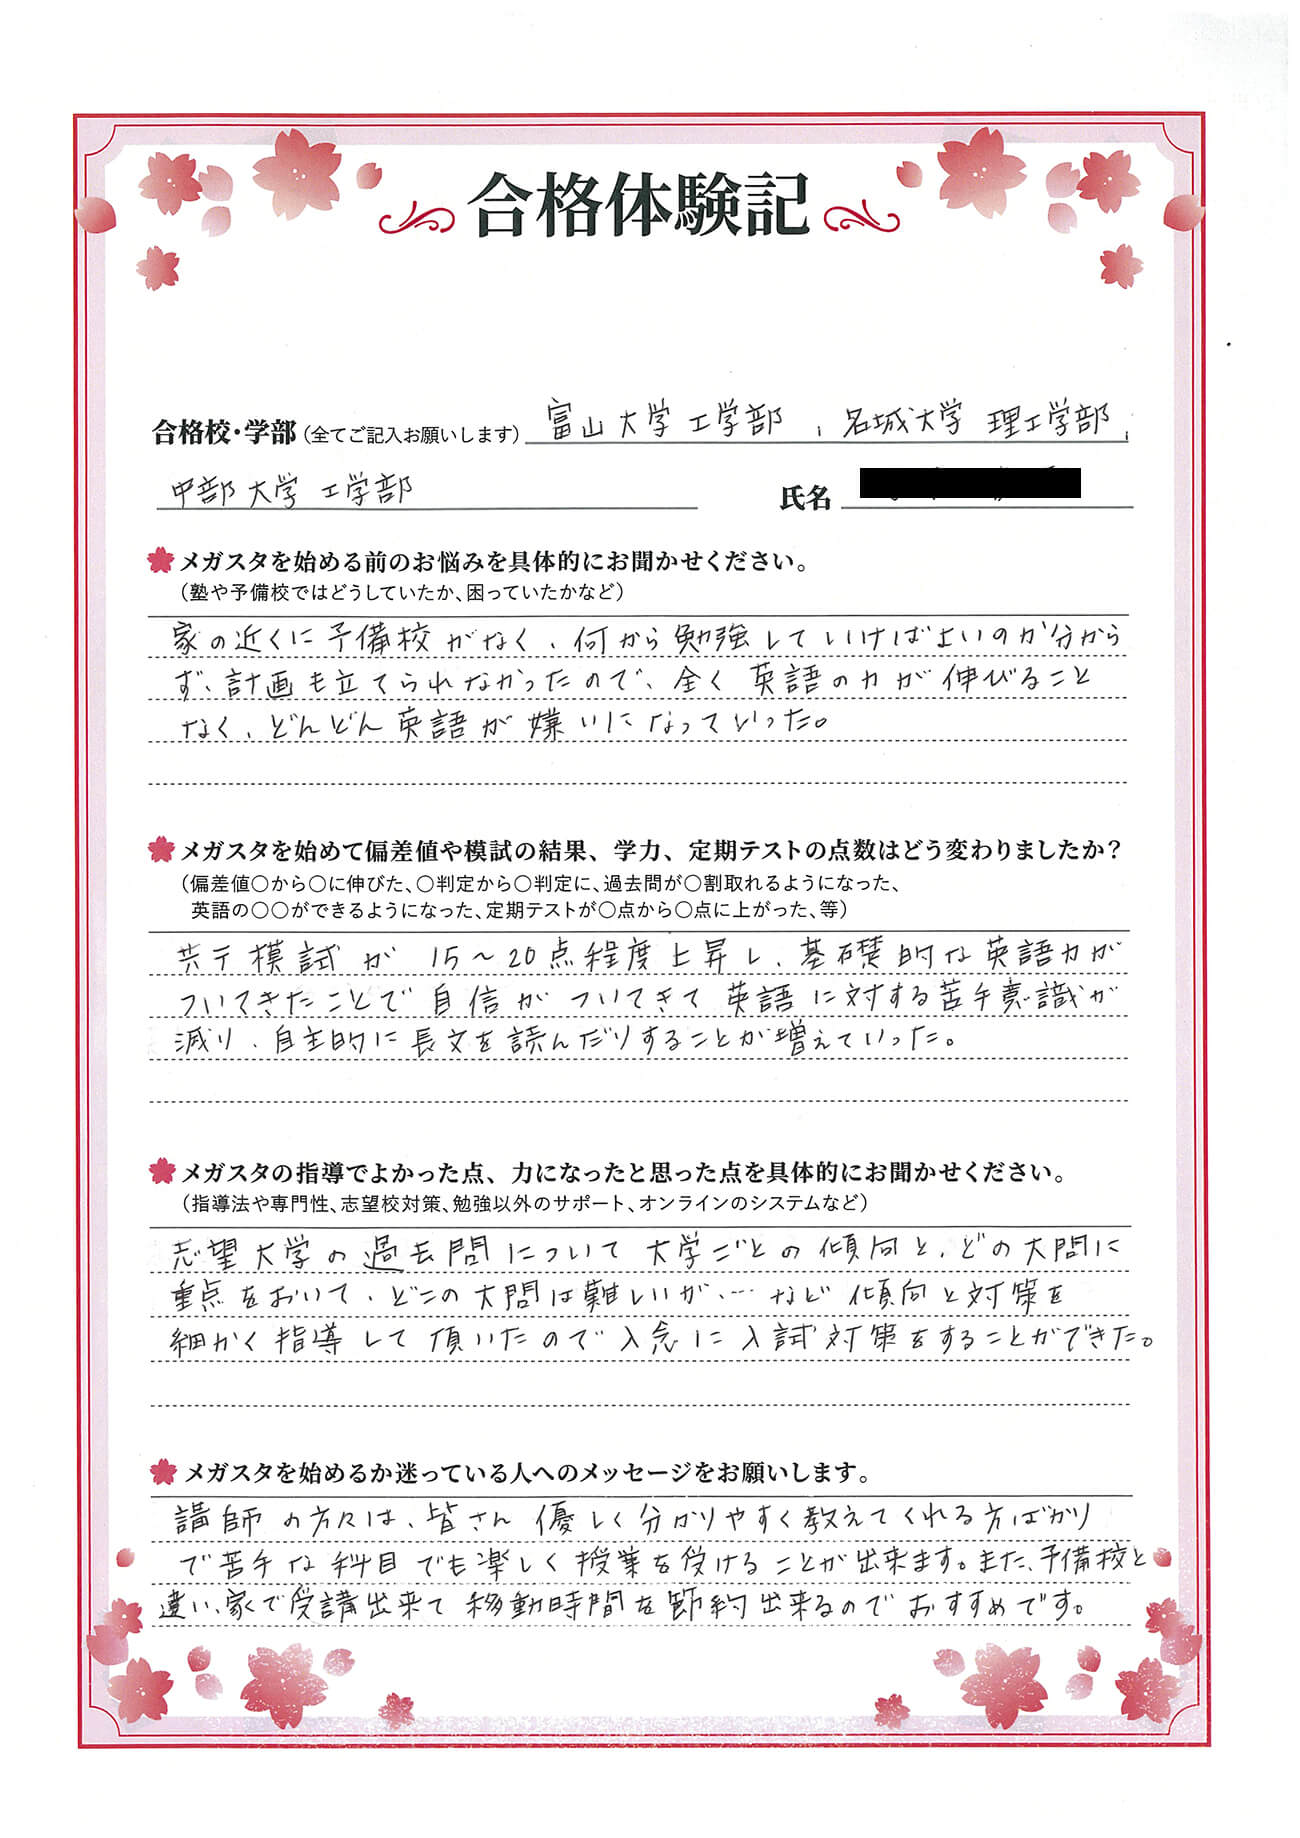 合格体験記
合格校・学部（全てご記入お願いします）富山大学 工学部 、名城大学 理工学部、
中部大学 工学部 氏名
メガスタを始める前のお悩みを具体的にお聞かせください。
（塾や予備校ではどうしていたか、困っていたかなど）
家の近くに予備校がなく、何から勉強していけばよいのか分から
ず、計画も立てられなかったので、全く英語の力が伸びること
なく、どんどん英語が嫌いになっていった。
メガスタを始めて偏差値や模試の結果、学力、定期テストの点数はどう変わりましたか？
（偏差値○から○に伸びた、○判定から○判定に、過去問が○割取れるようになった、
英語の○○ができるようになった、定期テストが○点から○点に上がった、等）
共テ模試が 15～20点程度上昇し、基礎的な英語力が
ついてきたことで自信がついてきて英語に対する苦手意識が
減り、自主的に長文を読んだりすることが増えていった。
メガスタの指導でよかった点、力になったと思った点を具体的にお聞かせください。
（指導法や専門性、志望校対策、勉強以外のサポート、オンラインのシステムなど）
志望大学の過去問について大学ごとの傾向と、どの大問に
重点をおいて、どこの大問は難しいが、…など傾向と対策を
細かく指導して頂いたので入念に入試対策をすることができた。
メガスタを始めるか迷っている人へのメッセージをお願いします。
講師の方々は、皆さん優しく分かりやすく教えてくれる方ばかり
で苦手な科目でも楽しく授業を受けることが出来ます。また、予備校と
違い、家で受講出来て移動時間を節約出来るのでおすすめです。